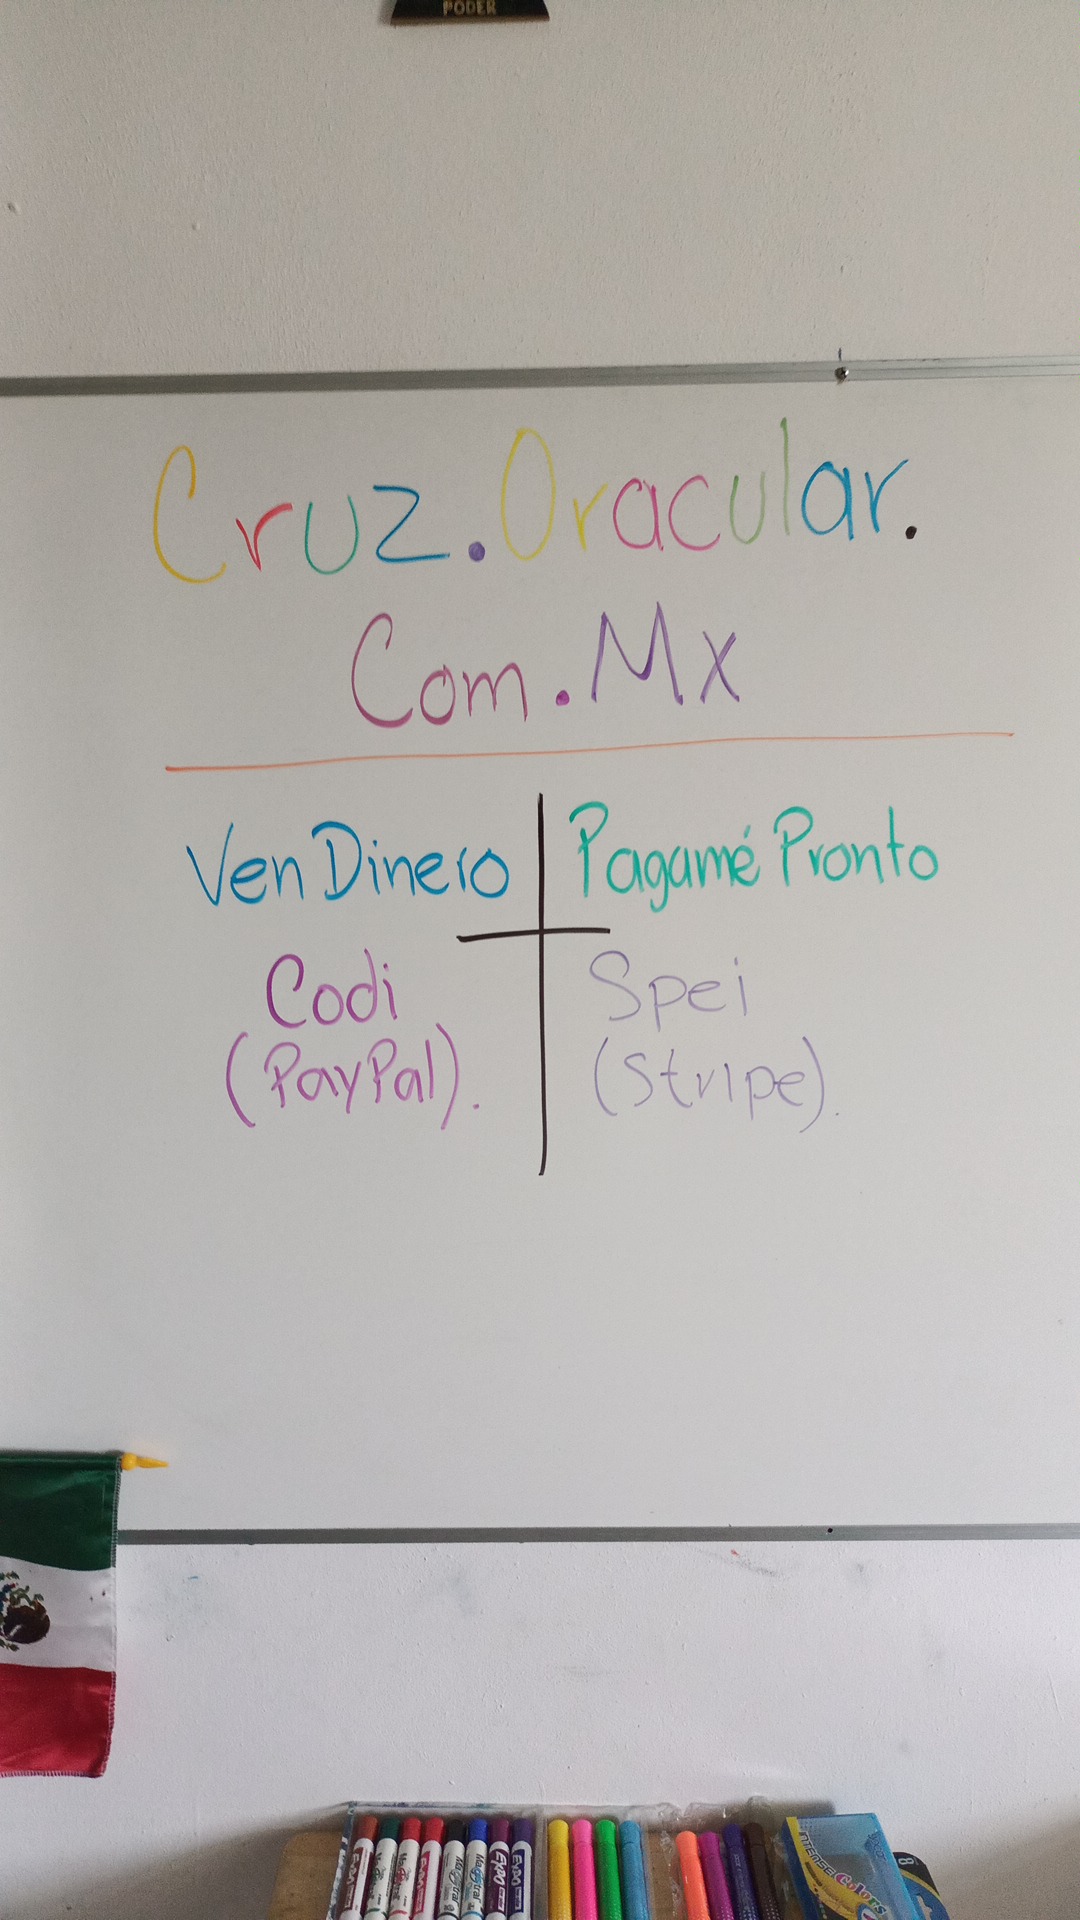 PODER
Cruz.Oracular.
Com.Mx
VenDinero
Pagamé Pronto
Codi
(PayPal).
Spei
(Stripe).
EXPO
Magistral
Magistral
EXPO
EXPO
INTENSE Colors
8